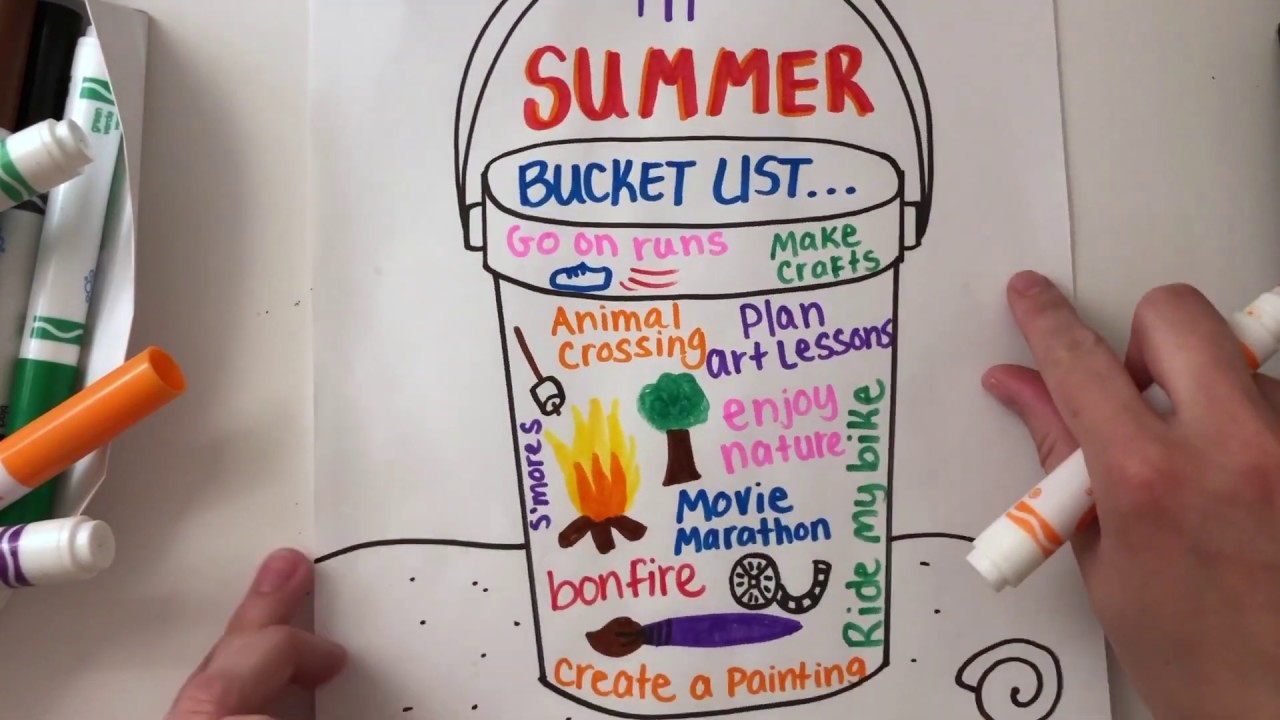 SUMMER
BUCKET LIST...
Go on runs
Make
crafts
Animal
Crossing
Plan
art Lessons
enjoy
nature
Ride my bike
s'mores
Movie
Marathon
bonfire
Create a Painting
green